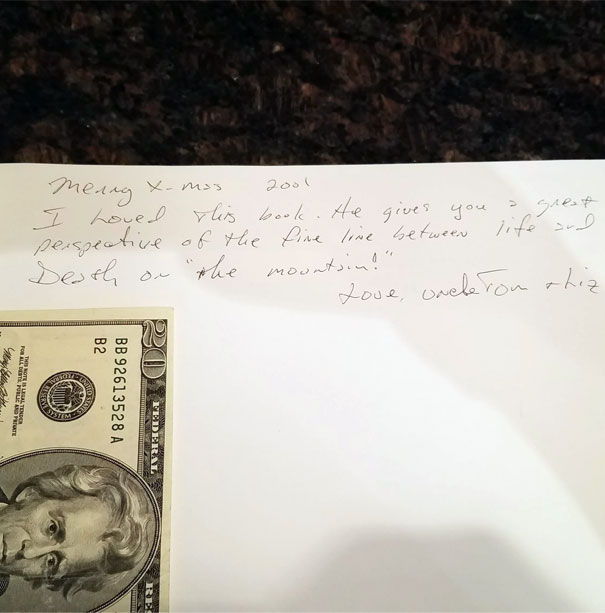 Merry X-mas 2001
I Loved This book. He gives you a great
perspective of the fine line between life and
Death on "the mountain!"
Love, uncle Tom + Liz
20
FEDERAL
BB92613528A
B2
THIS NOTE IS LEGAL TENDER
FOR ALL DEBTS, PUBLIC AND PRIVATE